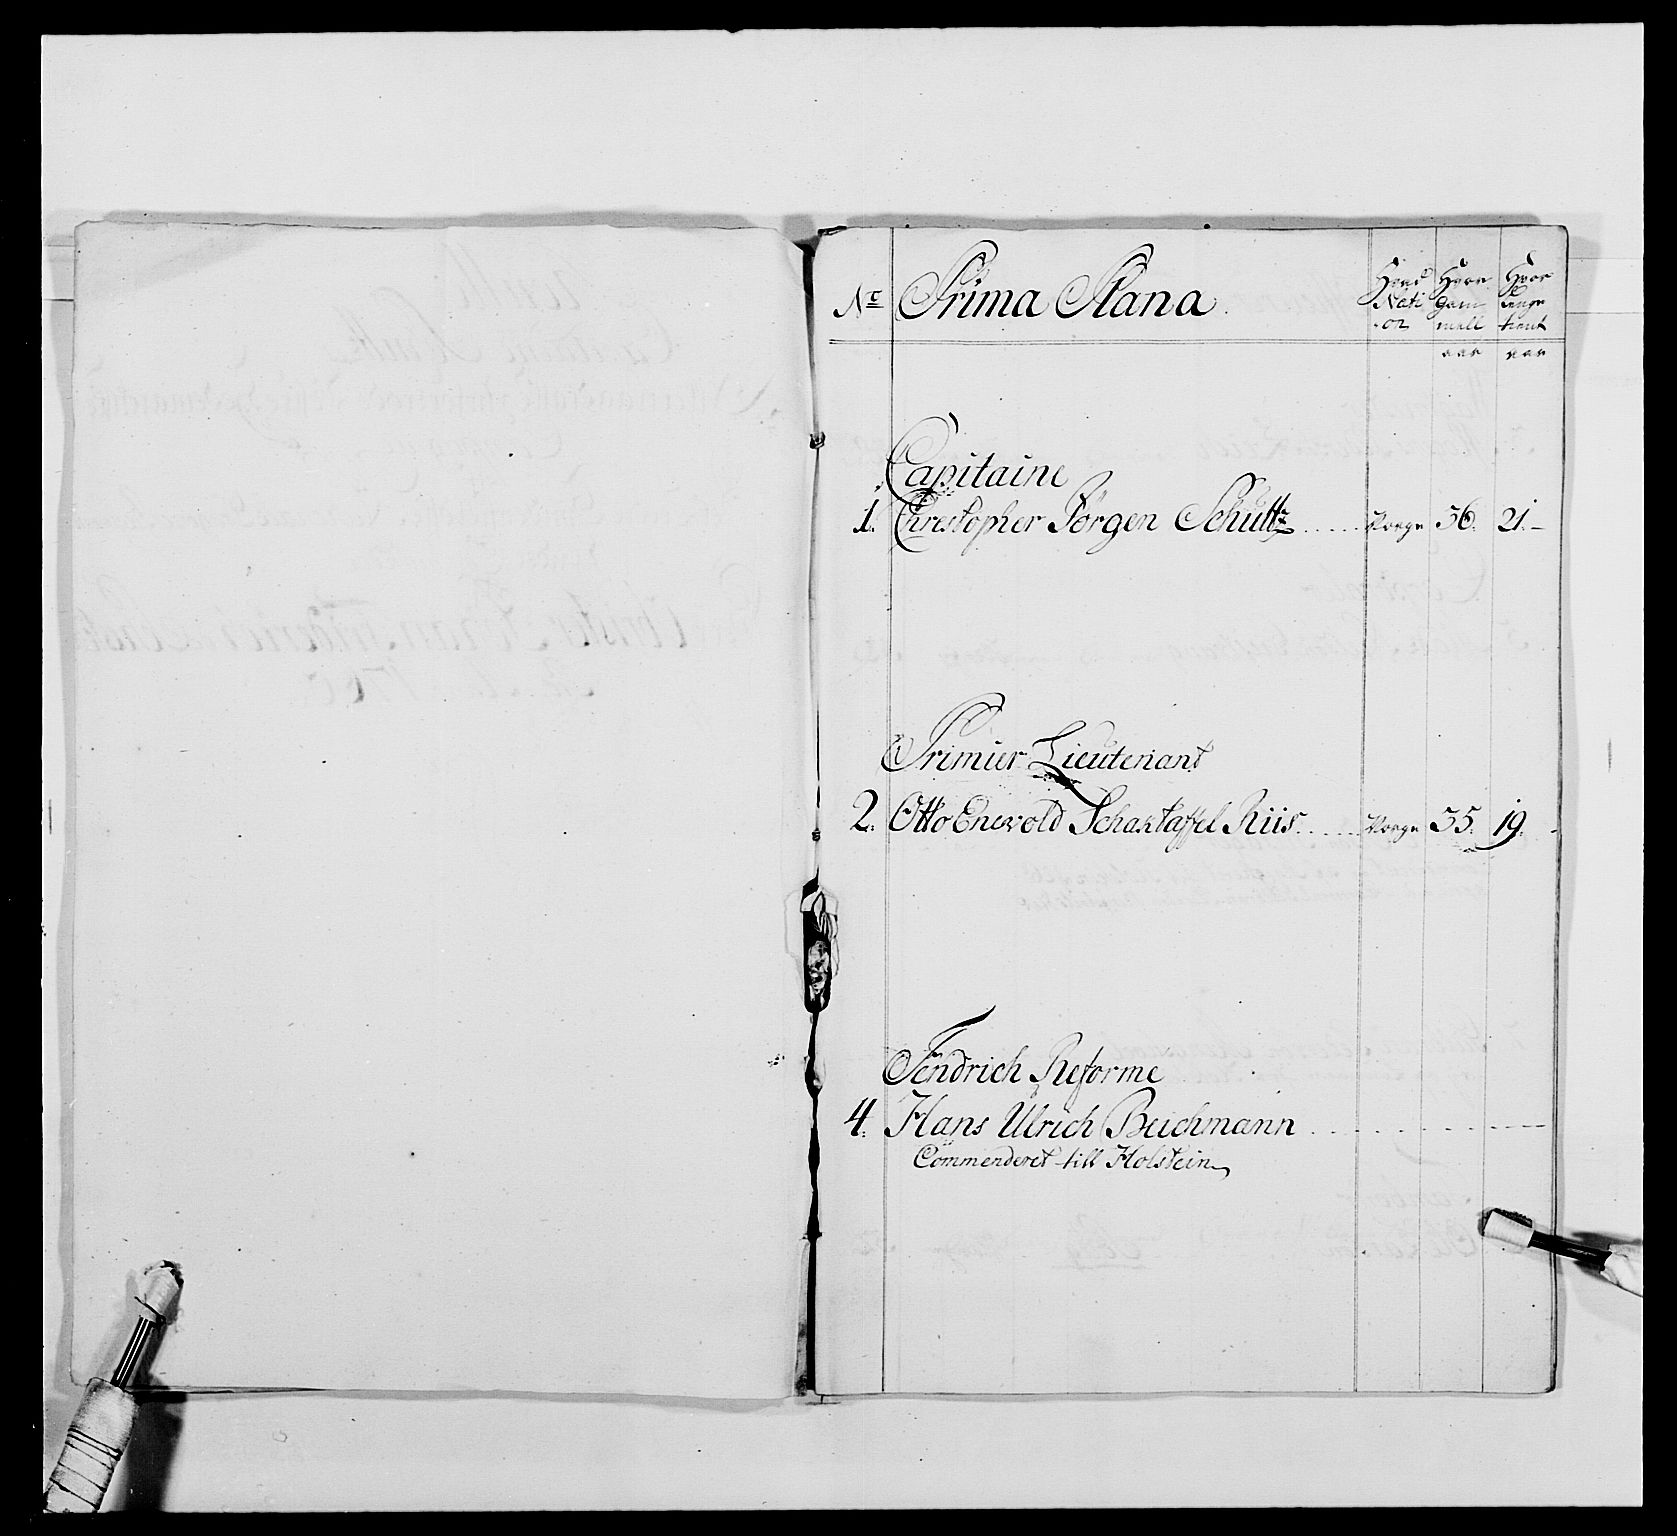 No Prima Plana. Hvad Nati-on Hvor gam-mell aar Hvor lenge tient aar
Capitaine
1. Christopher Jörgen Schültz Norge 56. 21.
Primier Lieutenant
2. Otto Enevold Schaktaffel Riis Norge 35. 19.
Fendrich Reforme
4. Hans Ulrich Beichmann
Commenderet till Holstein